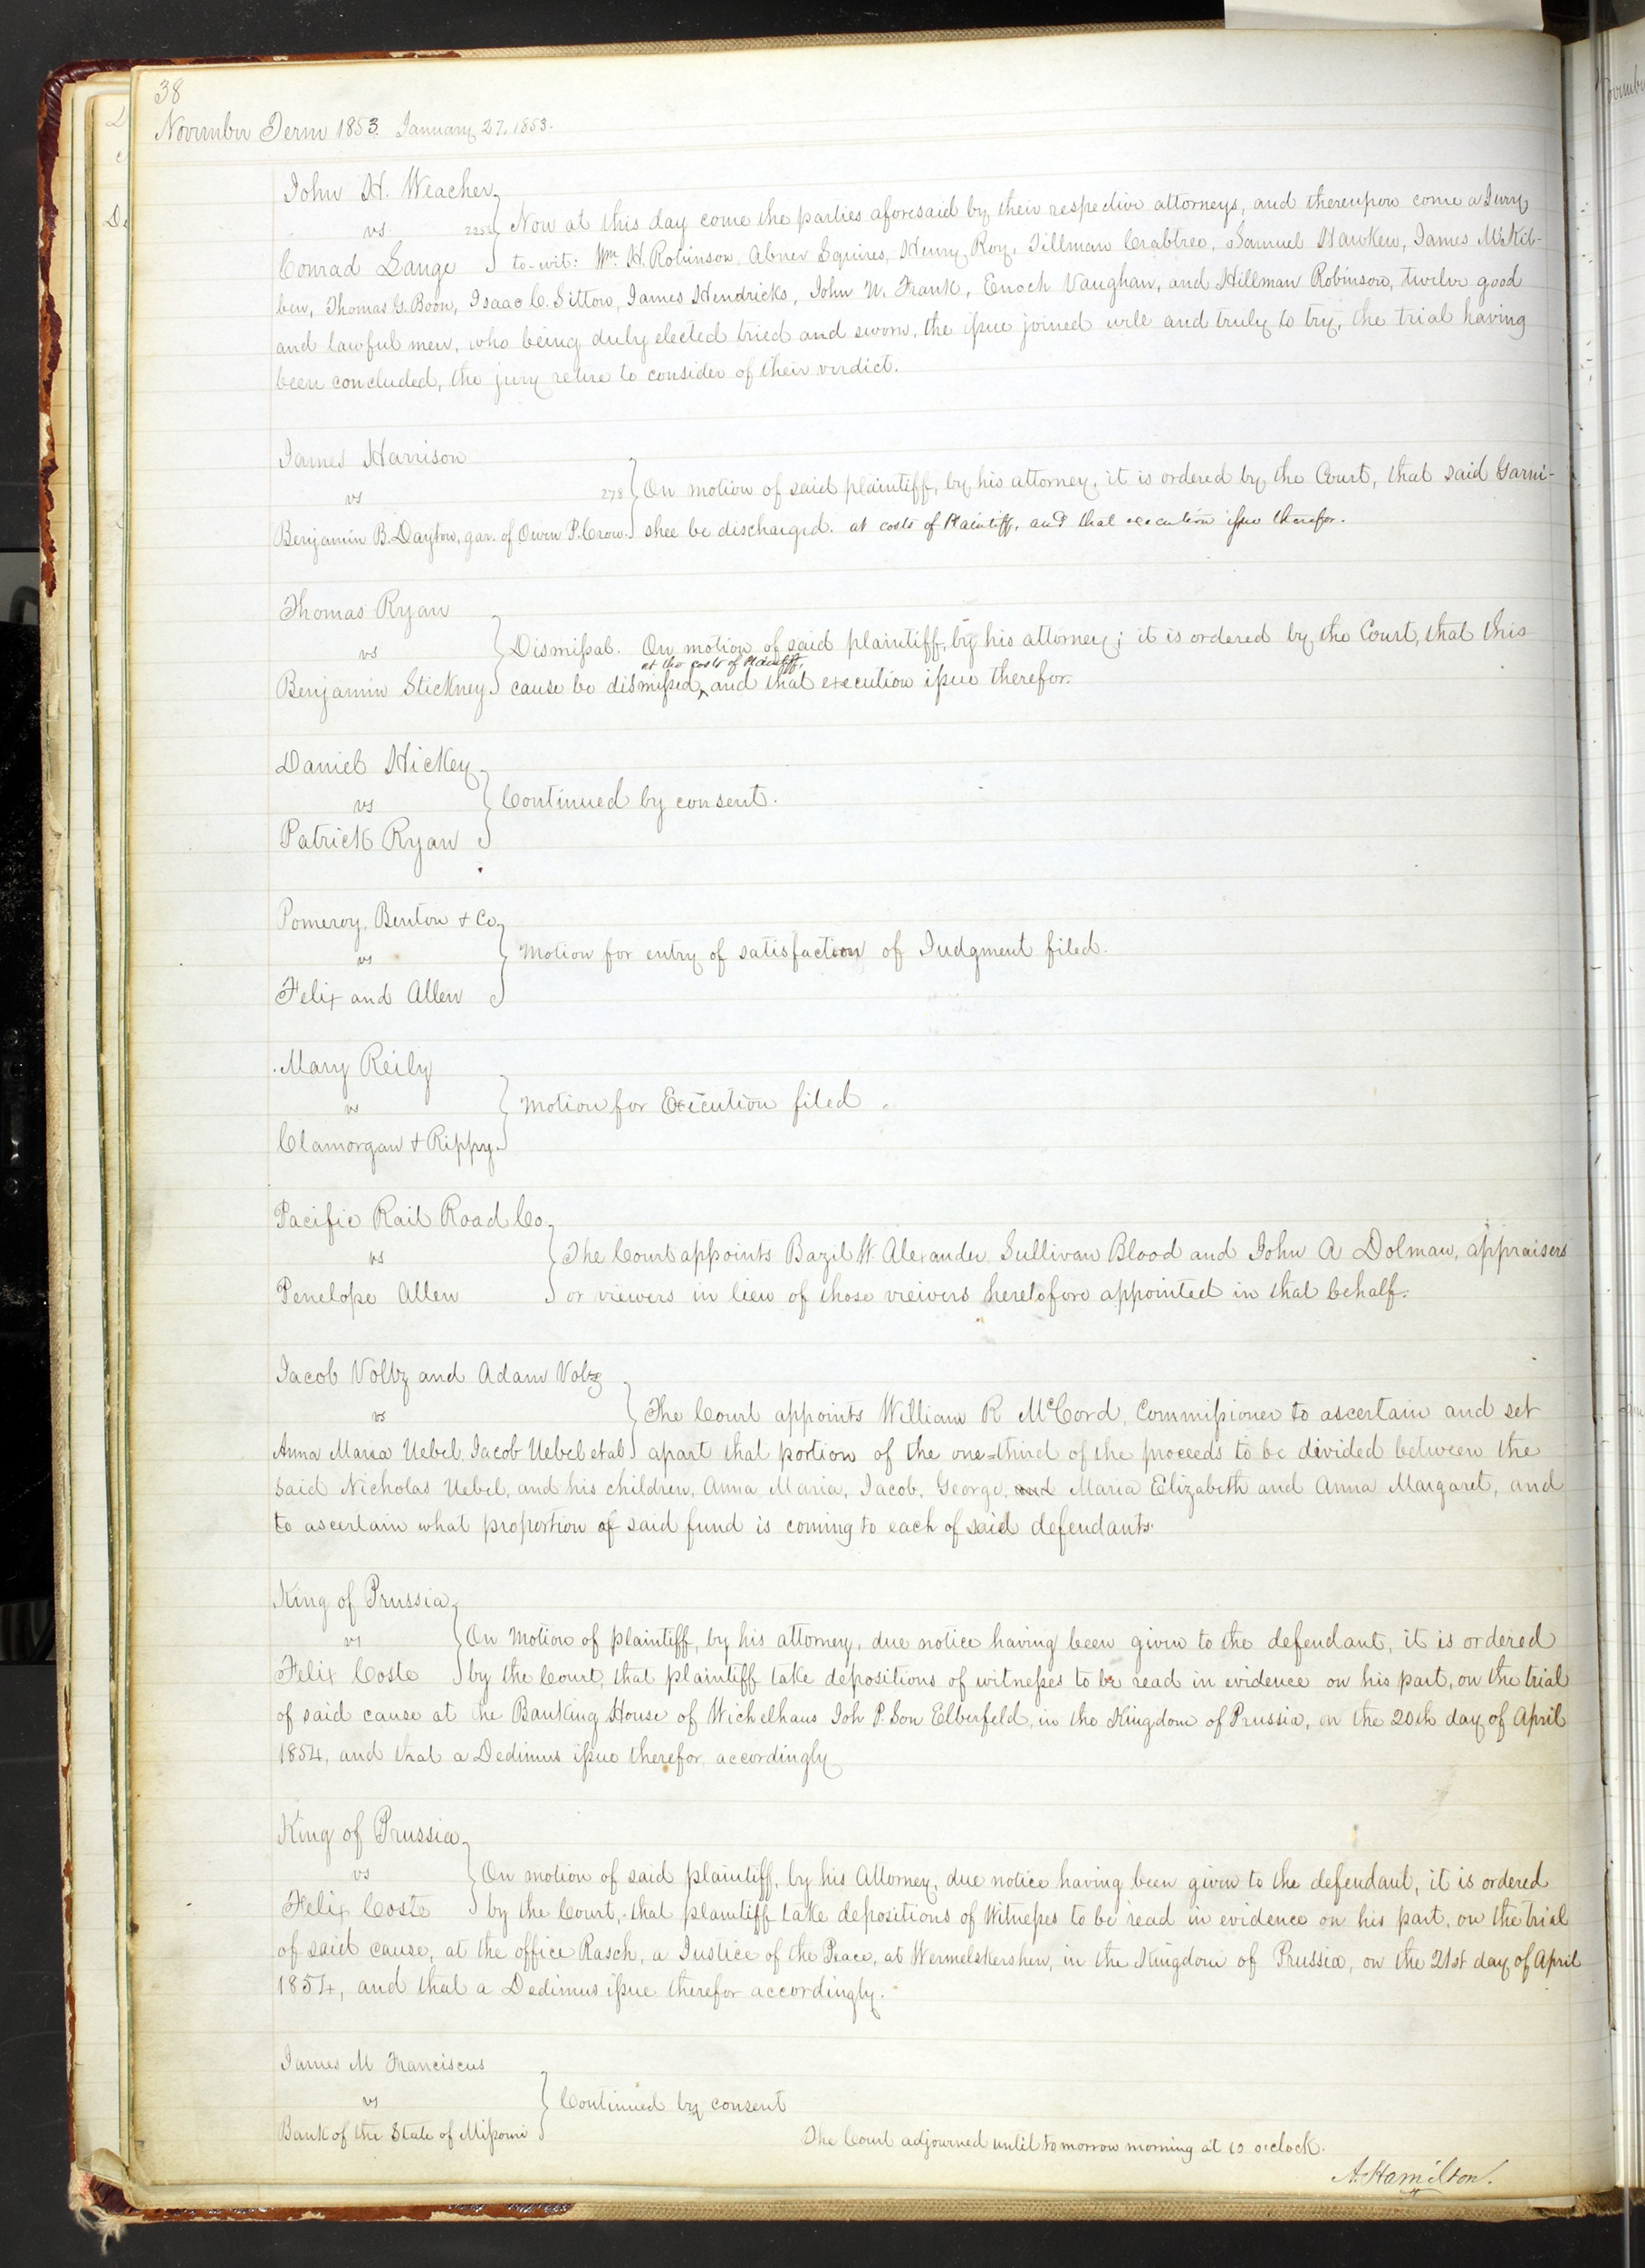 38
November Term 1853. January 27. 1853.
John H. Weacher
vs. Now at this day come the parties aforesaid by their respective attorneys, and thereupon come a Jury
Conrad Lange to-wit: Wm. H. Robinson, Abner Squires, Henry Roy, Tillman Crabtree, Samuel Hawken, James McKib-
ben, Thomas G. Boon, Isaac C. Sittow, James Hendricks, John N. Frank, Enoch Vaughan, and Hillman Robinson, twelve good
and lawful men, who being duly elected tried and sworn, the issue joined well and truly to try, the trial having
been concluded, the jury retire to consider of their verdict.
James Harrison
vs 278 On motion of said plaintiff, by his attorney, it is ordered by the Court, that said Garni-
Benjamin B. Dayton, gar. of Owen P. Crow. shee be discharged. at costs of Plaintiff, and that execution issue therefor.
Thomas Ryan
vs Dismissal. On motion of said plaintiff, by his attorney; it is ordered by the Court, that this
at the costs of Plaintiff,
Benjamin Stickney cause be dismissed, and that execution issue therefor.
Daniel Hickey
vs Continued by consent.
Patrick Ryan
Pomeroy, Benton & Co
vs Motion for entry of satisfaction of Judgment filed.
Felix and Allen
Mary Reily
vs Motion for Execution filed.
Clamorgan & Rippy.
Pacific Rail Road Co.
vs The Court appoints Bazil W. Alexander Sullivan Blood and John A Dolman, appraisers
Penelope Allen or viewers in lieu of those viewers heretofore appointed in that behalf.
Jacob Voltz and Adam Voltz
vs The Court appoints William R McCord, Commissioner to ascertain and set
Anna Maria Uebel, Jacob Uebel et al apart that portion of the one=third of the proceeds to be divided between the
said Nicholas Uebel, and his children, Anna Maria, Jacob, George, and Maria Elizabeth and Anna Margaret, and
to ascertain what proportion of said fund is coming to each of said defendants.
King of Prussia
vs On Motion of plaintiff, by his attorney, due notice having been given to the defendant, it is ordered
Felix Coste by the Court, that plaintiff take depositions of witnesses to be read in evidence on his part, on the trial
of said cause at the Banking House of Wichelhaus Joh P. Son Elberfeld, in the Kingdom of Prussia, on the 20th day of April
1854, and that a Dedimus issue therefor, accordingly
King of Prussia
vs On motion of said plaintiff, by his Attorney, due notice having been given to the defendant, it is ordered
Felix Coste by the Court, that plaintiff take depositions of Witnesses to be read in evidence on his part, on the trial
of said cause, at the office Rasch, a Justice of the Peace, at Wermelskershen, in the Kingdom of Prussia, on the 21st day of April
1854, and that a Dedimus issue therefor accordingly.
James M Franciscus
vs Continued by consent
Bank of the State of Missouri
The Court adjourned until tomorrow morning at 10 o'clock.
A. Hamilton.